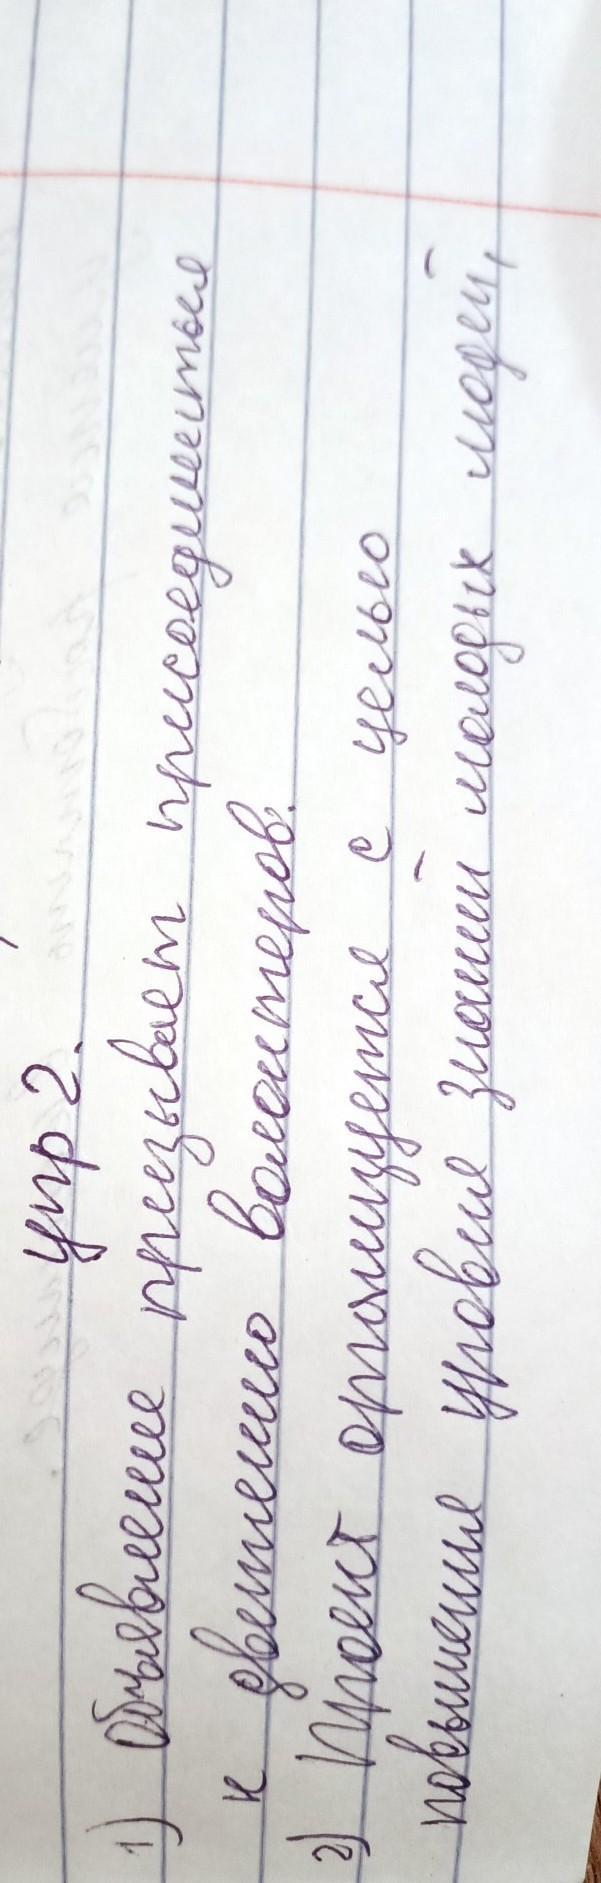 упр 2.
1) Объявление призывает присоединиться
к движению волонтеров.
2) Проект организуется с целью
повышения уровня знаний молодых людей,